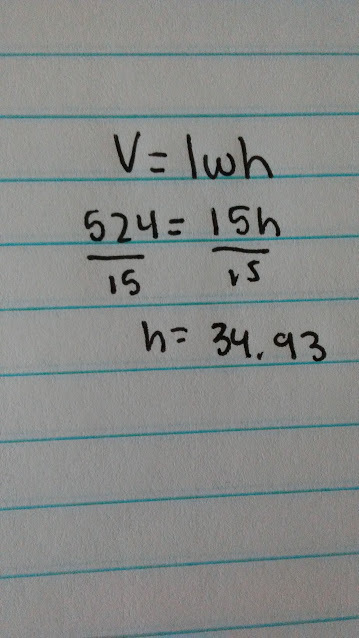 V = lwh
524 = 15h
15 15
h = 34.93